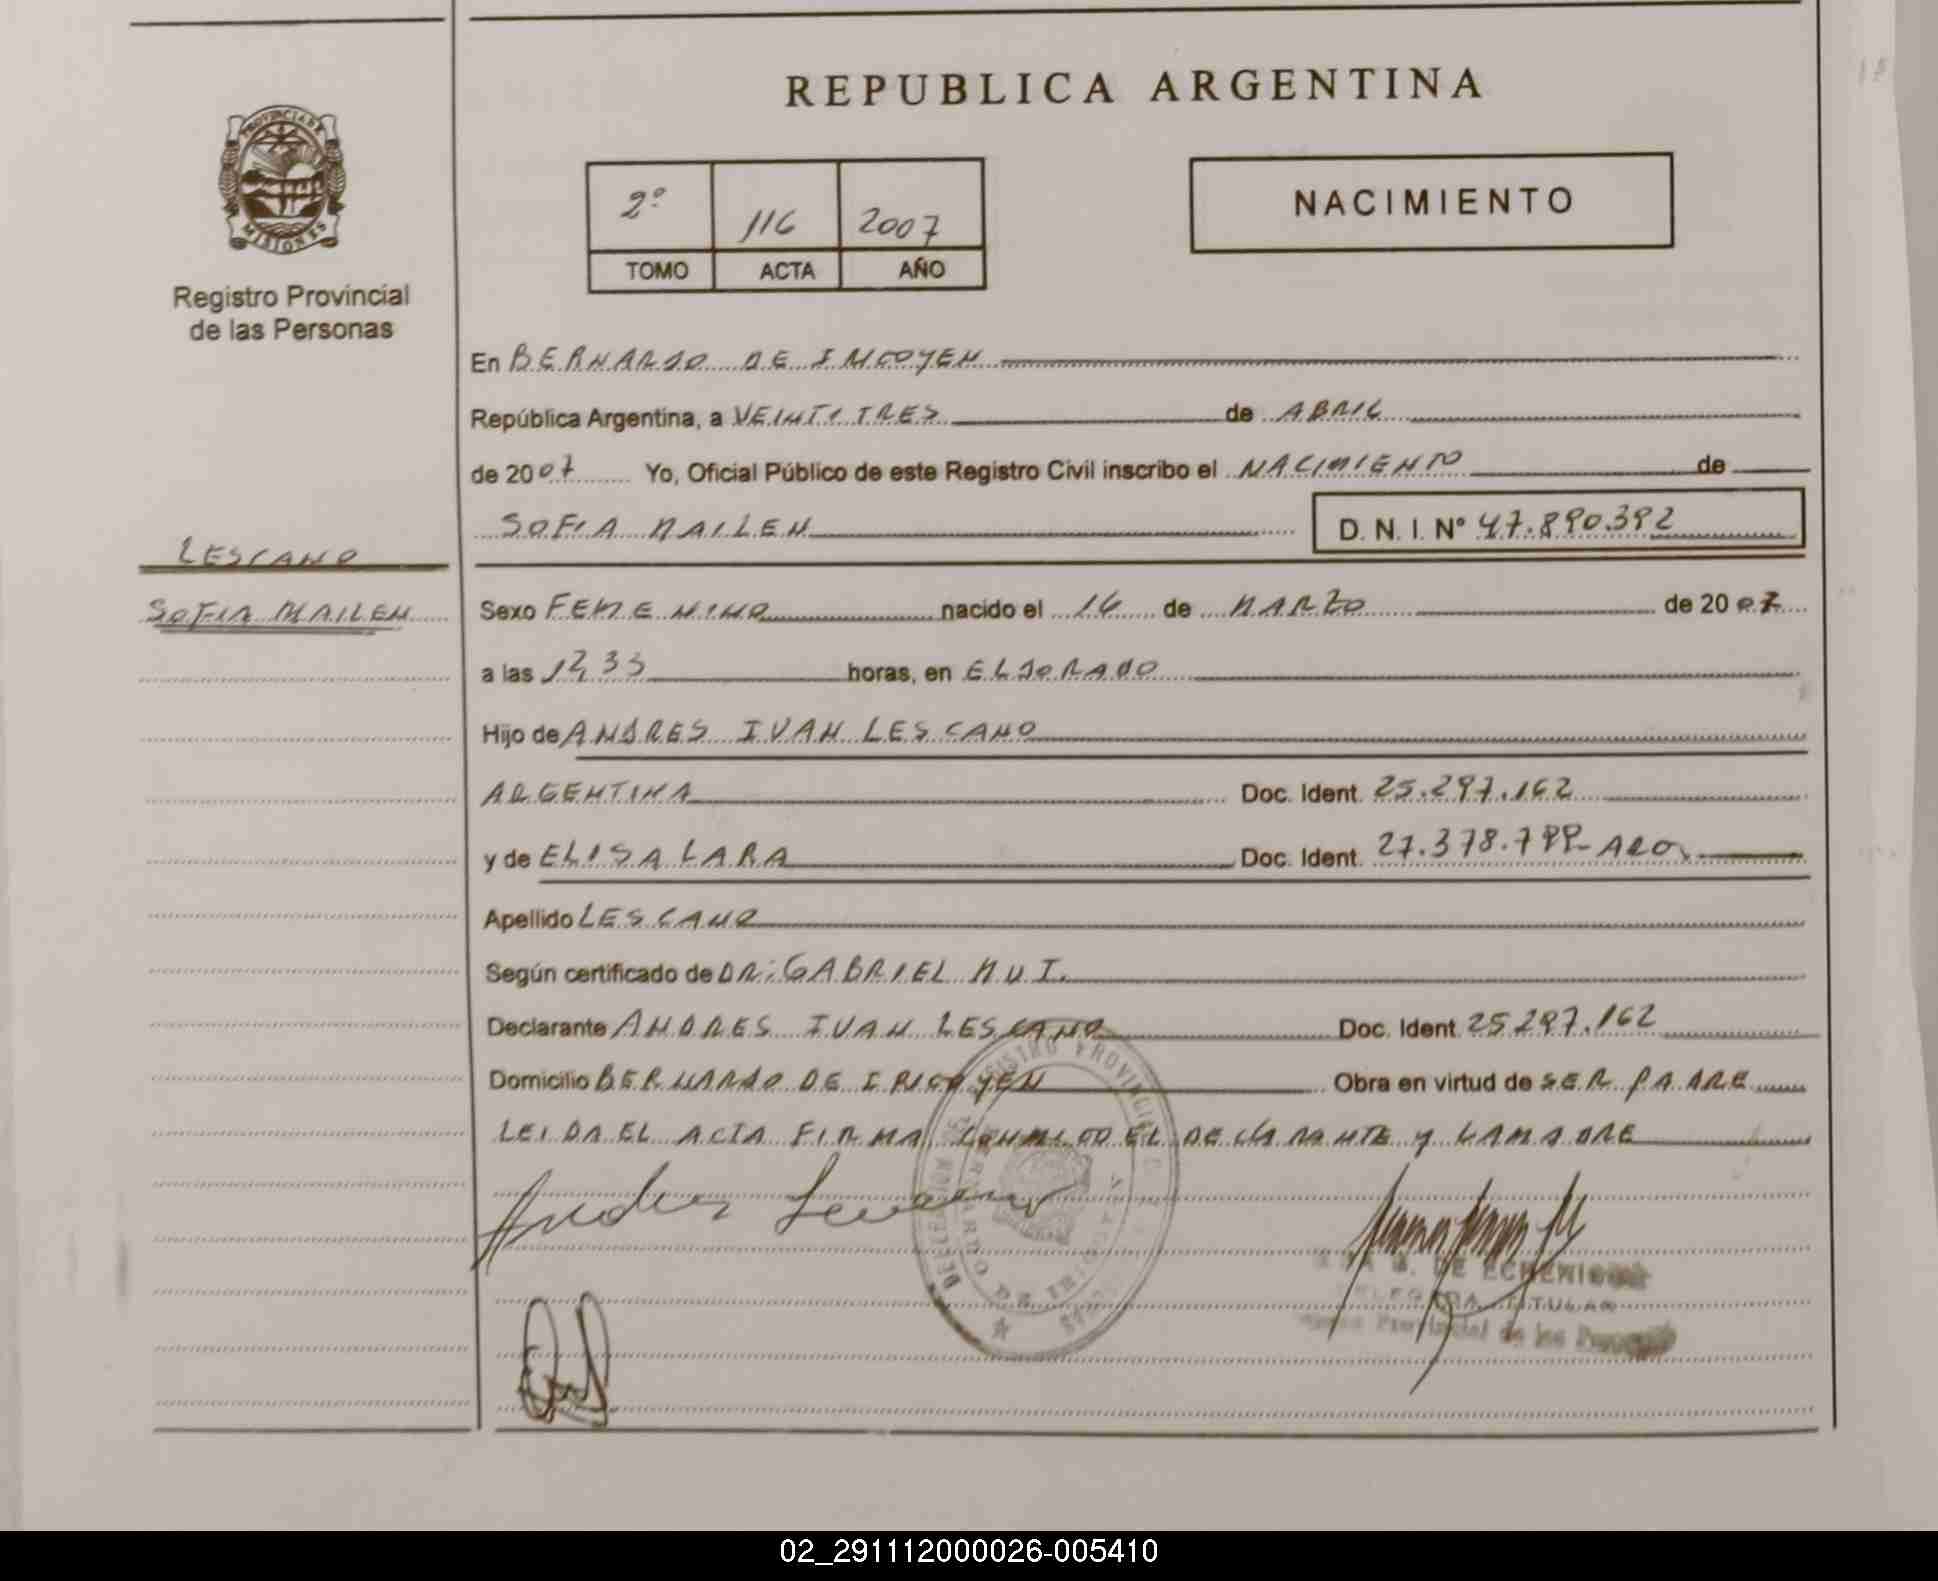 REPUBLICA ARGENTINA
PROVINCIA DE
MISIONES
Registro Provincial
de las Personas
2º 116 2007
TOMO ACTA AÑO
NACIMIENTO
En BERNARDO DE IRIGOYEN
República Argentina, a VEINTITRES de ABRIL
de 2007 Yo, Oficial Público de este Registro Civil inscribo el NACIMIENTO de
SOFIA MAILEN D. N. I. Nº 47.890.392
LESCANO
SOFIA MAILEN
Sexo FEMENINO nacido el 16 de MARZO de 2007
a las 12,33 horas, en ELDORADO
Hijo de ANDRES IVAN LESCANO
ARGENTINA Doc. Ident. 25.297.162
y de ELISA LARA Doc. Ident. 27.378.799- ARG.
Apellido LESCANO
Según certificado de DR. GABRIEL
Declarante ANDRES IVAN LESCANO Doc. Ident. 25.297.162
Domicilio BERNARDO DE IRIGOYEN Obra en virtud de SER PADRE
LEIDA EL ACTA FIRMAN CONMIGO EL DECLARANTE Y LA MADRE
DE ECHENIQUE
DELEGADA TITULAR
Provincial de las Personas
02_291112000026-005410